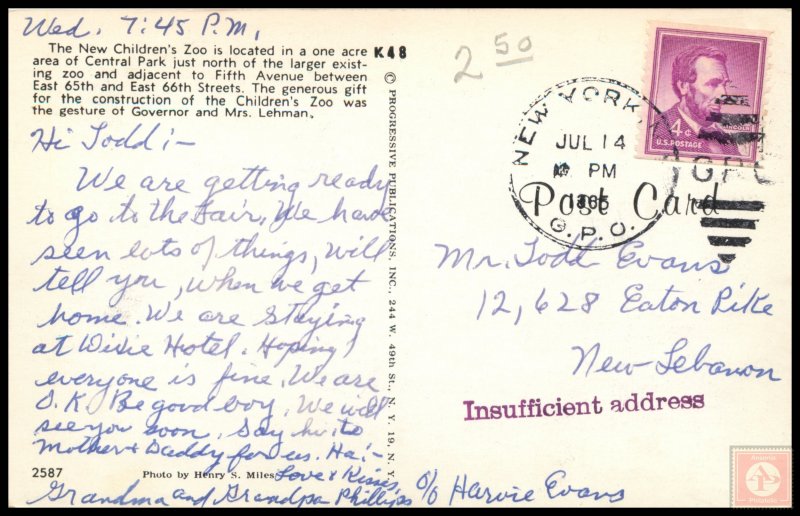 Wed. 7:45 P.M.
The New Children's Zoo is located in a one acre
area of Central Park just north of the larger exist-
ing zoo and adjacent to Fifth Avenue between
East 65th and East 66th Streets. The generous gift
for the construction of the Children's Zoo was
the gesture of Governor and Mrs. Lehman.
K48
Hi Todd:-
We are getting ready
to go to the Fair. We have
seen lots of things, will
tell you, when we get
home. We are staying
at Dixie Hotel. Hoping
everyone is fine. We are
O.K. Be good boy. We will
see you soon, Say hi to
Mother & Daddy for us. Ha!-
Love & Kisses,
Grandma and Grandpa Phillips
2587
Photo by Henry S. Miles
© PROGRESSIVE PUBLICATIONS, INC., 244 W. 49th St., N. Y. 19, N. Y.
2 50
NEW YORK, N.Y.
JUL 14
PM
G.P.O.
4¢
LINCOLN
U.S. POSTAGE
GPO
Post Card
Mr. Todd Evans
12,628 Eaton Pike
New Lebanon
Insufficient address
c/o Harvie Evans
Ansonia
Philatelic